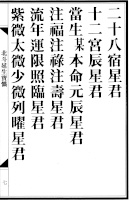 二十八宿星君
十二宮辰星君
當生某本命元辰星君
注福注祿注壽星君
流年運限照臨星君
紫微太微少微列曜星君